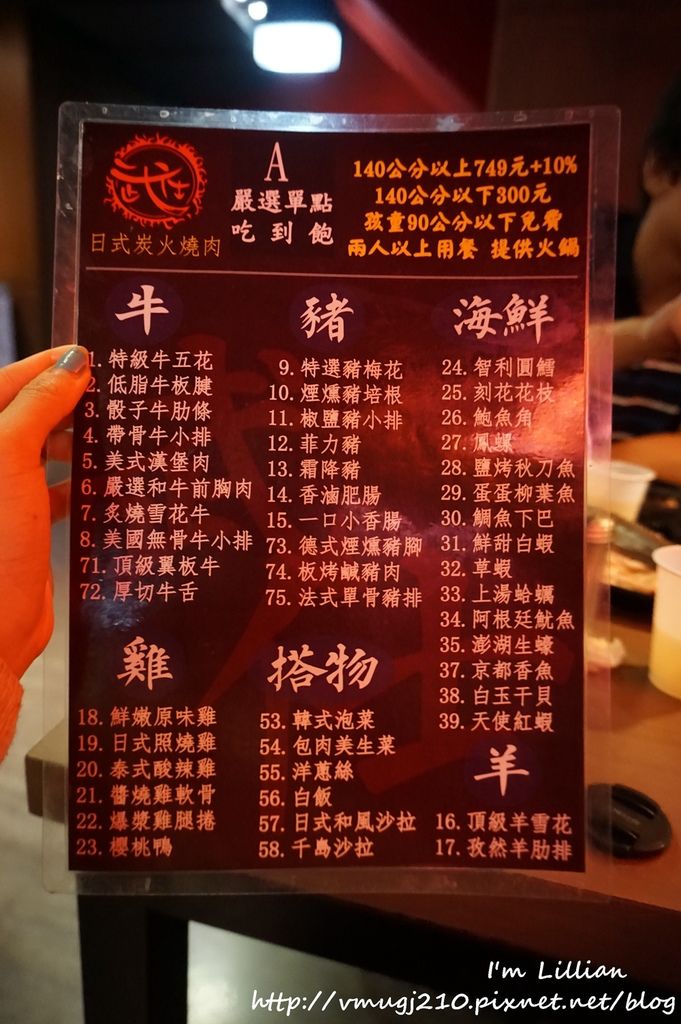 日式炭火燒肉
A
嚴選單點
吃到飽
140公分以上749元+10%
140公分以下300元
孩童90公分以下免費
兩人以上用餐 提供火鍋
牛
1. 特級牛五花
2. 低脂牛板腱
3. 骰子牛肋條
4. 帶骨牛小排
5. 美式漢堡肉
6. 嚴選和牛前胸肉
7. 炙燒雪花牛
8. 美國無骨牛小排
71. 頂級翼板牛
72. 厚切牛舌
豬
9. 特選豬梅花
10. 煙燻豬培根
11. 椒鹽豬小排
12. 菲力豬
13. 霜降豬
14. 香滷肥腸
15. 一口小香腸
73. 德式煙燻豬腳
74. 板烤鹹豬肉
75. 法式單骨豬排
海鮮
24. 智利圓鱈
25. 刻花花枝
26. 鮑魚角
27. 鳳螺
28. 鹽烤秋刀魚
29. 蛋蛋柳葉魚
30. 鯛魚下巴
31. 鮮甜白蝦
32. 草蝦
33. 上湯蛤蠣
34. 阿根廷魷魚
35. 澎湖生蠔
37. 京都香魚
38. 白玉干貝
39. 天使紅蝦
雞
18. 鮮嫩原味雞
19. 日式照燒雞
20. 泰式酸辣雞
21. 醬燒雞軟骨
22. 爆漿雞腿捲
23. 櫻桃鴨
搭物
53. 韓式泡菜
54. 包肉美生菜
55. 洋蔥絲
56. 白飯
57. 日式和風沙拉
58. 千島沙拉
羊
16. 頂級羊雪花
17. 孜然羊肋排
I'm Lillian
http://vmugj210.pixnet.net/blog